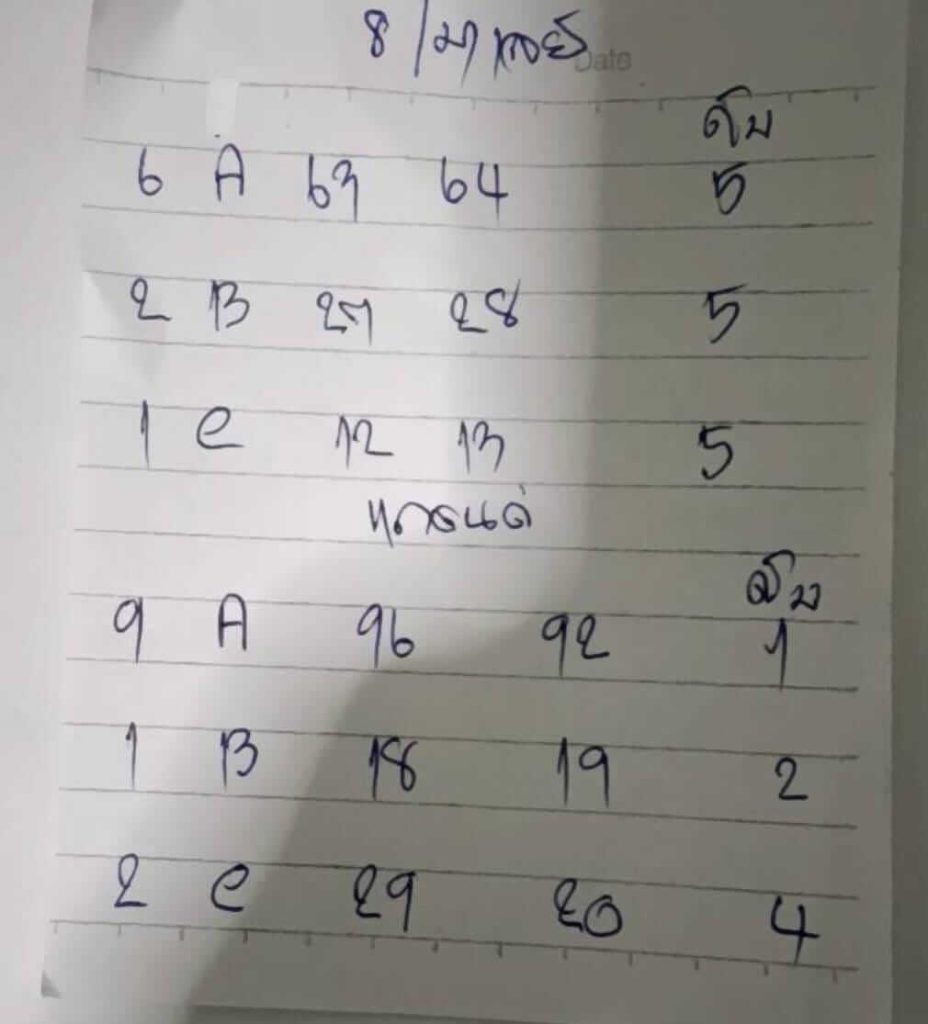 8/มาเลย์
Date
ดับ
6 A 63 64 5
2 B 27 28 5
1 C 12 13 5
ดับ
9 A 96 92 1
1 B 18 19 2
2 C 29 20 4